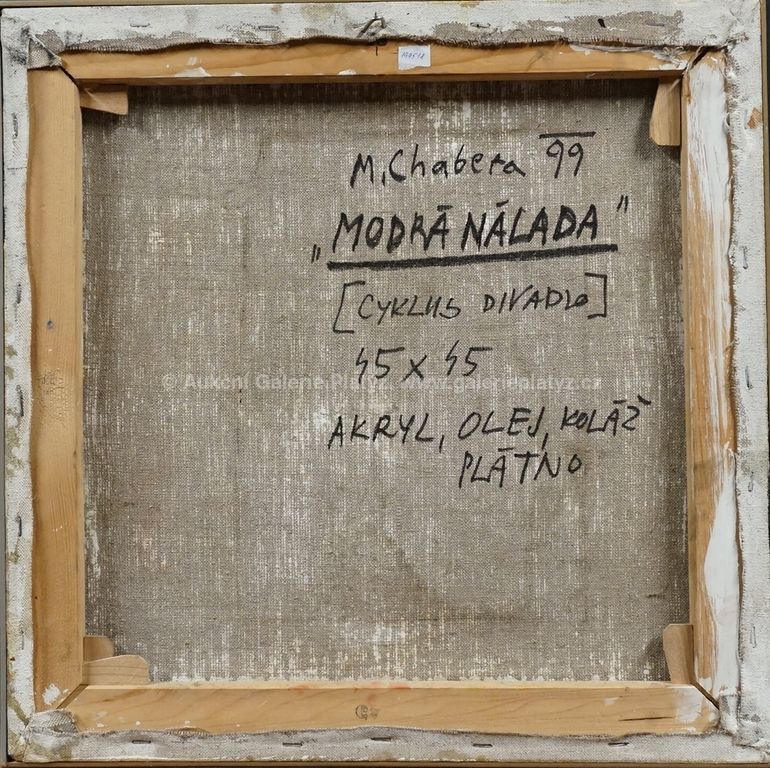 M. Chabera 99
„MODRÁ NÁLADA"
[CYKLUS DIVADLO]
45 x 45
© Aukční Galerie Platýz www.galerieplatyz.cz
AKRYL, OLEJ, KOLÁŽ
PLÁTNO